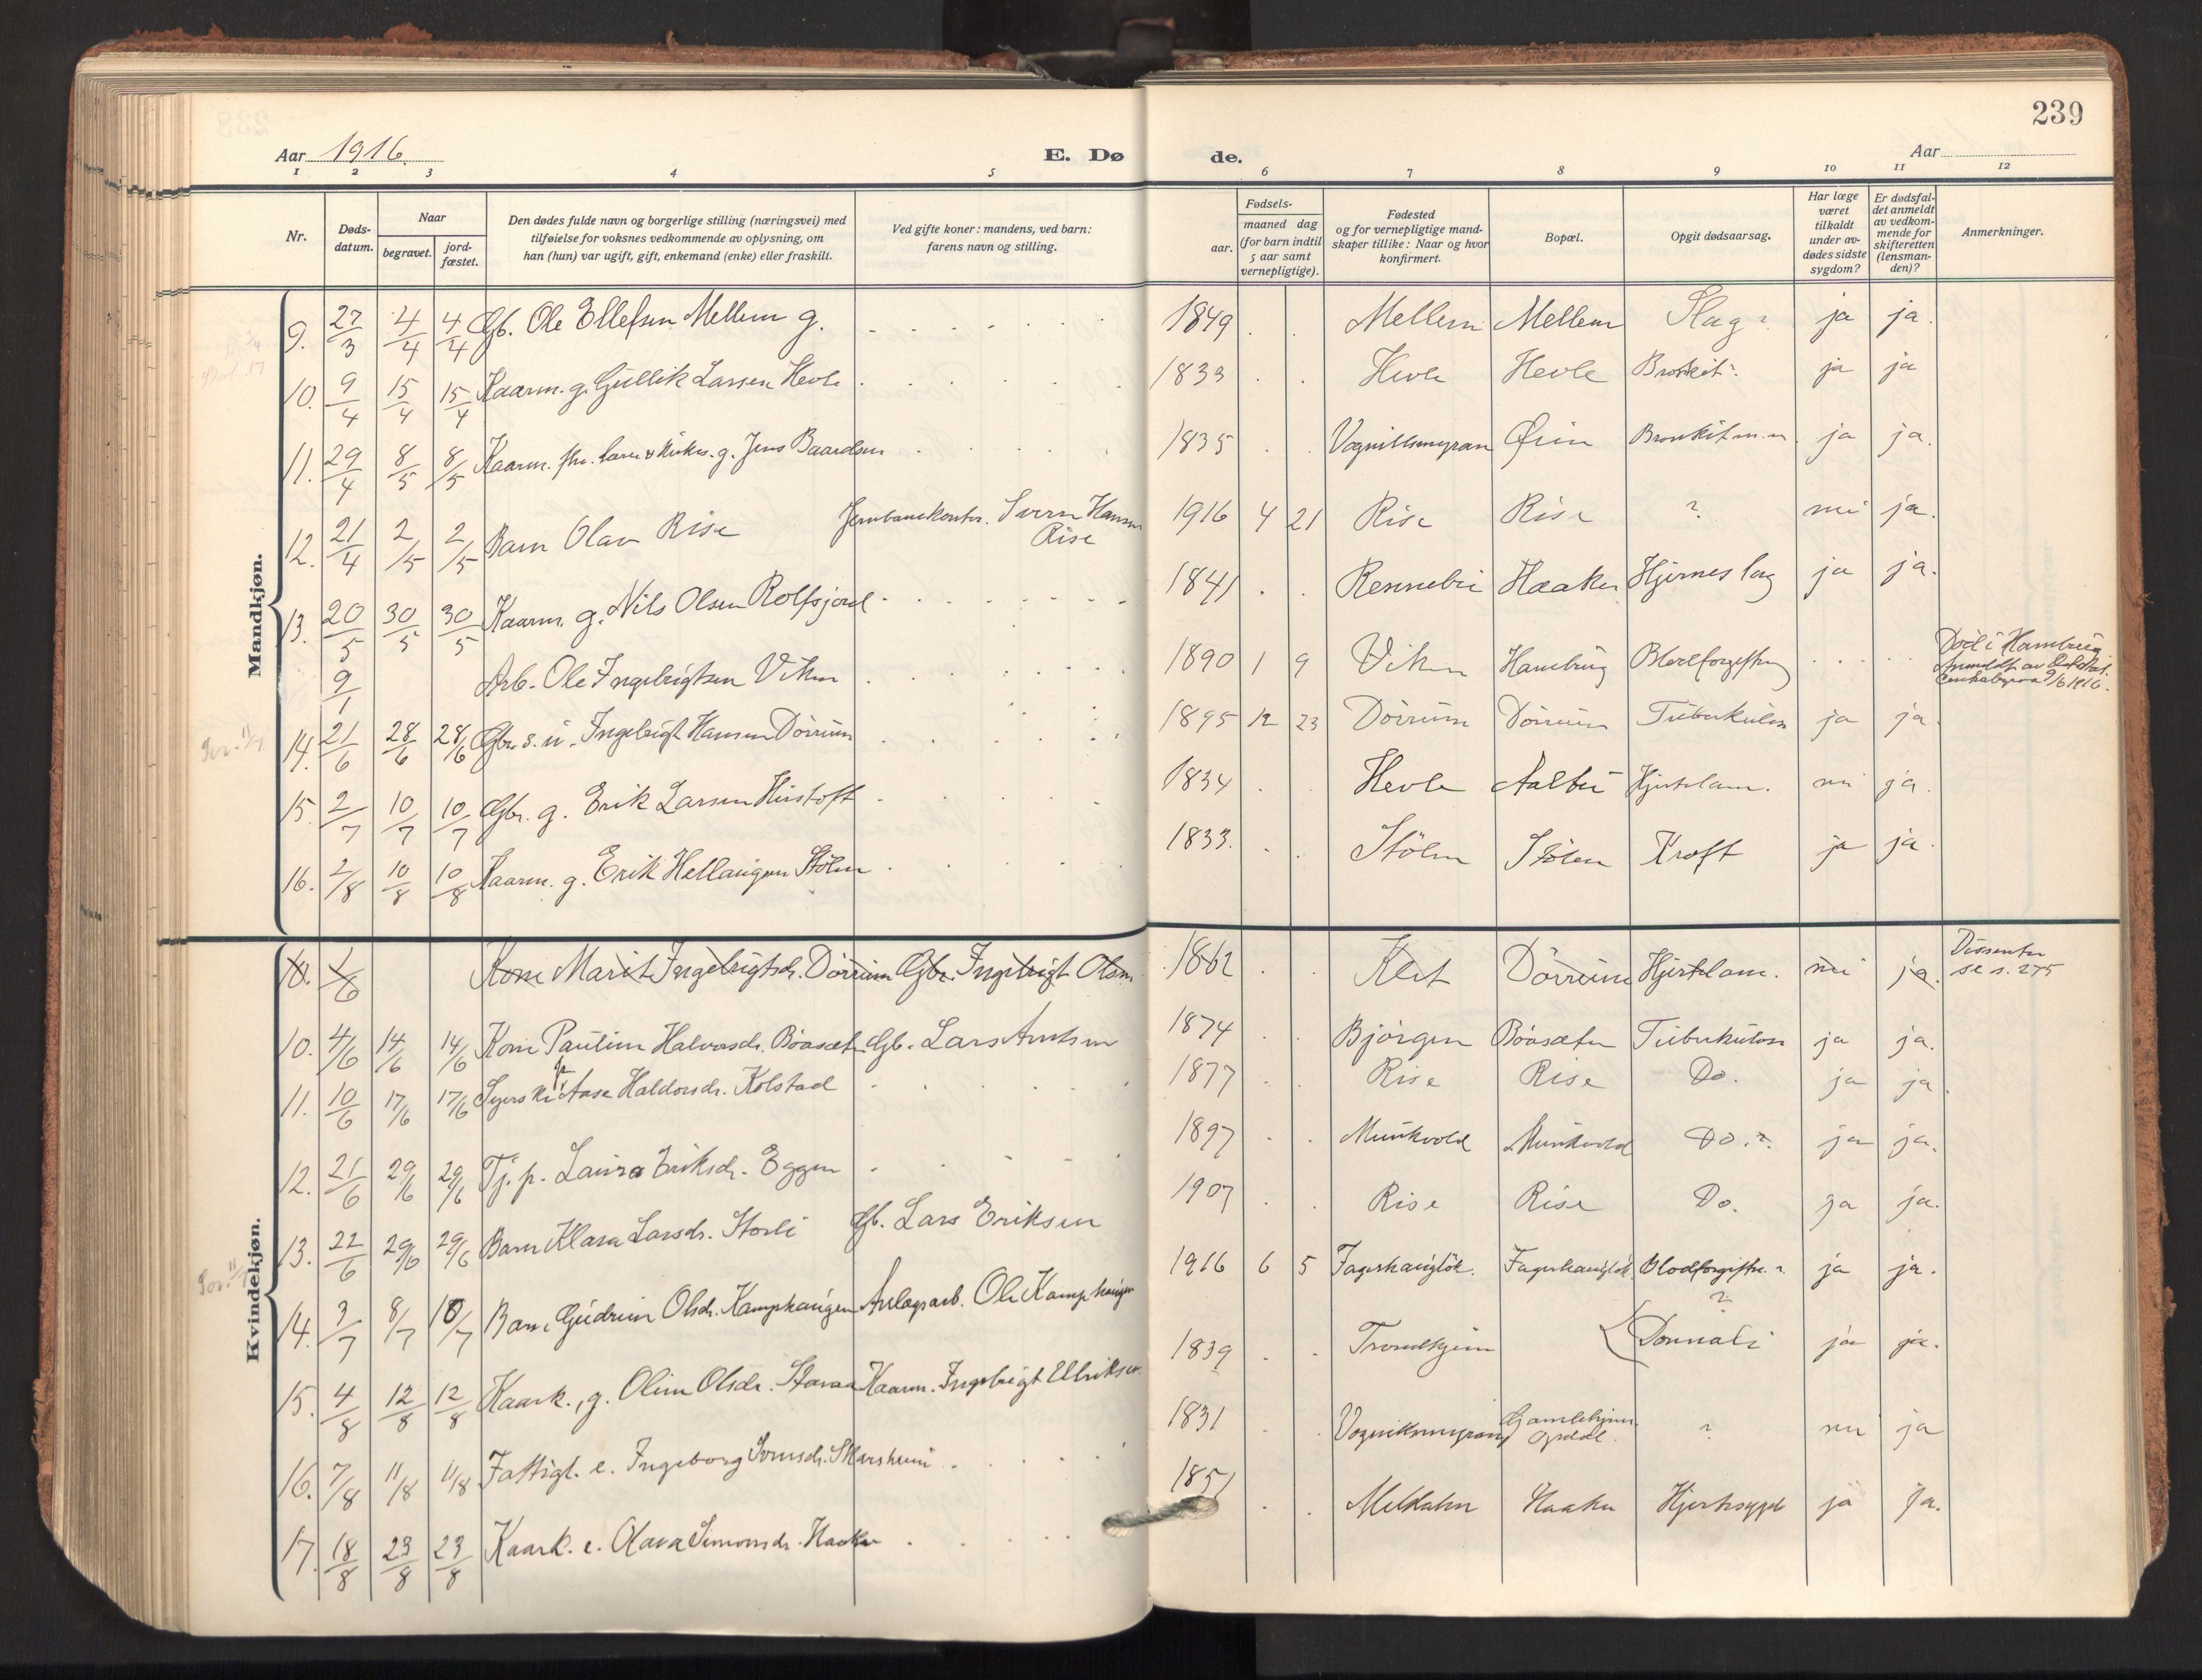 239
Aar 1916.
E. Dø
de.
Aar
1 2 3 4 5 6 7 8 9 10 11 12
Nr.
Døds-
datum.
Naar
begravet.
jord-
fæstet.
Den dødes fulde navn og borgerlige stilling (næringsvei) med
tilføielse for voksnes vedkommende av oplysning, om
han (hun) var ugift, gift, enkemand (enke) eller fraskilt.
Ved gifte koner: mandens, ved barn:
farens navn og stilling.
Fødsels-
aar.
maaned dag
(for barn indtil
5 aar samt
vernepligtige).
Fødested
og for vernepligtige mand-
skaper tillike: Naar og hvor
konfirmert.
Bopæl.
Opgit dødsaarsag.
Har læge
været
tilkaldt
under av-
dødes sidste
sygdom?
Er dødsfal-
det anmeldt
av vedkom-
mende for
skifteretten
(lensman-
den)?
Anmerkninger.
Mandkjøn.
9. 27/3 4/4 4/4 Gb. Ole Ellefsen Mellem g. 1849 Mellem Mellem Slag? ja ja.
10. 9/4 15/4 15/4 Kaarm. g. Gullik Larsen Hevle 1833 Hevle Hevle Bronkit? ja ja
11. 29/4 8/5 8/5 Kaarm. g. Jens Baardsen 1835 Vognillsmyran Øien Bronkit m.m. ja ja.
12. 21/4 2/5 2/5 Barn Olav Rise Jernbanekontr. Sverre Hansen
Rise 1916 4 21 Rise Rise ? nei ja.
13. 20/5 30/5 30/5 Kaarm. g. Nils Olsen Rolfsjord 1841 Rennebu Haaker Hjerneslag ja ja.
9/1 Arb. Ole Ingebrigtsen Viken 1890 1 9 Viken Hamburg Blodforgiftning Død i Hamburg.
Anmeldt av Det Stat.
Centralbyraa 9/6 1916.
14. 21/6 28/6 28/6 Gbr. s. u. Ingebrigt Hansen Dørrum 1895 12 23 Dørrum Dørrum Tuberkulose ja ja
15. 2/7 10/7 10/7 Gbr. g. Erik Larsen Hustoft 1834 Hevle Aalbu Hjertelam. nei ja.
16. 2/8 10/8 10/8 Kaarm. g. Erik Hellaugen Stølen 1833. Stølen Stølen Kræft ja ja.
Kvindekjøn.
10. 1/6 Kone Marit Ingebrigtsdr. Dørrum Gbr. Ingebrigt Olsen 1862 Klet Dørrum Hjertelam. nei ja. Dissenter
se s. 275
10. 4/6 14/6 14/6 Kone Pauline Halvorsdr. Bøasæter Gb. Lars Arntsen 1874 Bjørgen Bøasæter Tuberkulose ja ja.
11. 10/6 17/6 17/6 Syerske Aase Haldorsdr. Kolstad 1877 Rise Rise Do. ja ja.
12. 21/6 29/6 29/6 Tj. p. Laura Eriksdr. Eggen 1897 Munkvold Munkvold Do.? ja ja.
13. 22/6 29/6 29/6 Barn Klara Larsdr. Storli Gb. Lars Eriksen 1907 Rise Rise Do. ja ja.
14. 3/7 8/7 10/7 Barn Gudrun Olsdr. Kamphaugen Anlægsarb. Ole Kamphaugen 1916 6 5 Fagerhaugløk. Fagerhaugløk. Blodforgiftn.? ja ja.
15. 4/8 12/8 12/8 Kaark., g. Oline Olsdr. Stavaa Kaarm. Ingebrigt Ulriksen 1839 Trondhjem ? ja ja.
16. 7/8 11/8 11/8 Fattigl. e. Ingeborg Svensdr. Skarsheim 1831 Vognillsmyran Gamlehjem
Opdal. ? nei ja
17. 18/8 23/8 23/8 Kaark. e. Olava Simonsdr. Haaker 1851 Melkahn Haaker Hjertesygd ja ja.